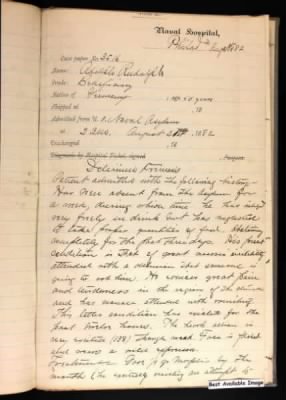 Naval Hospital,
Philad Aug 1882
Case paper No. 2516
Name: Adolph Rudolph
Grade: Beneficiary
Native of Germany aged 50 years
Shipped at 18
Admitted from U.S. Naval Asylum
at 2 P.M. August 1882
Discharged 18
Diagnosis by Hospital Ticket, signed Surgeon
Delirium Tremens
Patient admitted with the following history
Has been absent from the Asylum for
a week, during which time he has
very freely in drink but has neglected
to take proper quantities of food. Abstaining
completely for the past three days. His present
condition is that of great nervous
attended with a that someone is
going to him. He
and tenderness in the region of the
and has nausea attended with vomiting.
This latter condition has existed for the
past twelve hours. The
very (128) though weak Face is flushed
and wears a wild expression.
Treatment.
mouth (he vomiting an attempt to
Best Available Image